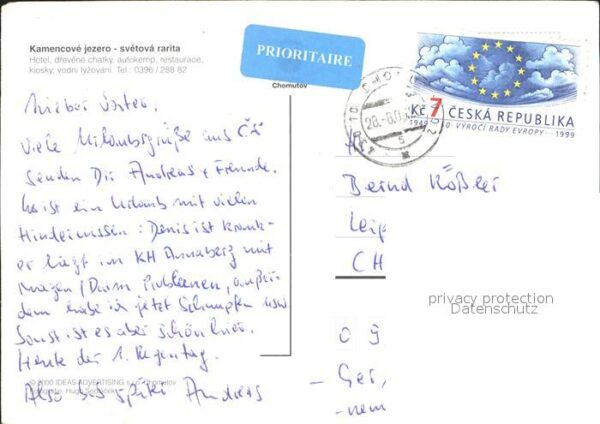 Kamencové jezero - světová rarita
Hotel, dřevěné chatky, autokemp, restaurace,
kiosky, vodní lyžování. Tel.: 0396 / 288 82
PRIORITAIRE
Chomutov
Kč 7 ČESKÁ REPUBLIKA
VÝROČÍ RADY EVROPY 1999
Lieber Vater,
Viele Urlaubsgrüße aus
senden Dir Andreas + Freunde.
Es ist ein Urlaub mit vielen
Hindernissen: Denis ist krank -
er liegt im KH Annaberg mit
Magen / Darm Problemen, außer-
dem habe ich jetzt Schnupfen usw
Sonst ist es aber schön hier.
Heute der 1. Regentag.
Also bis später Andreas
© 2000 IDEAS ADVERTISING s.r.o. Chomutov
Bernd Rößler
Leip
CH
privacy protection
Datenschutz
0 9
- Ger,
- nem